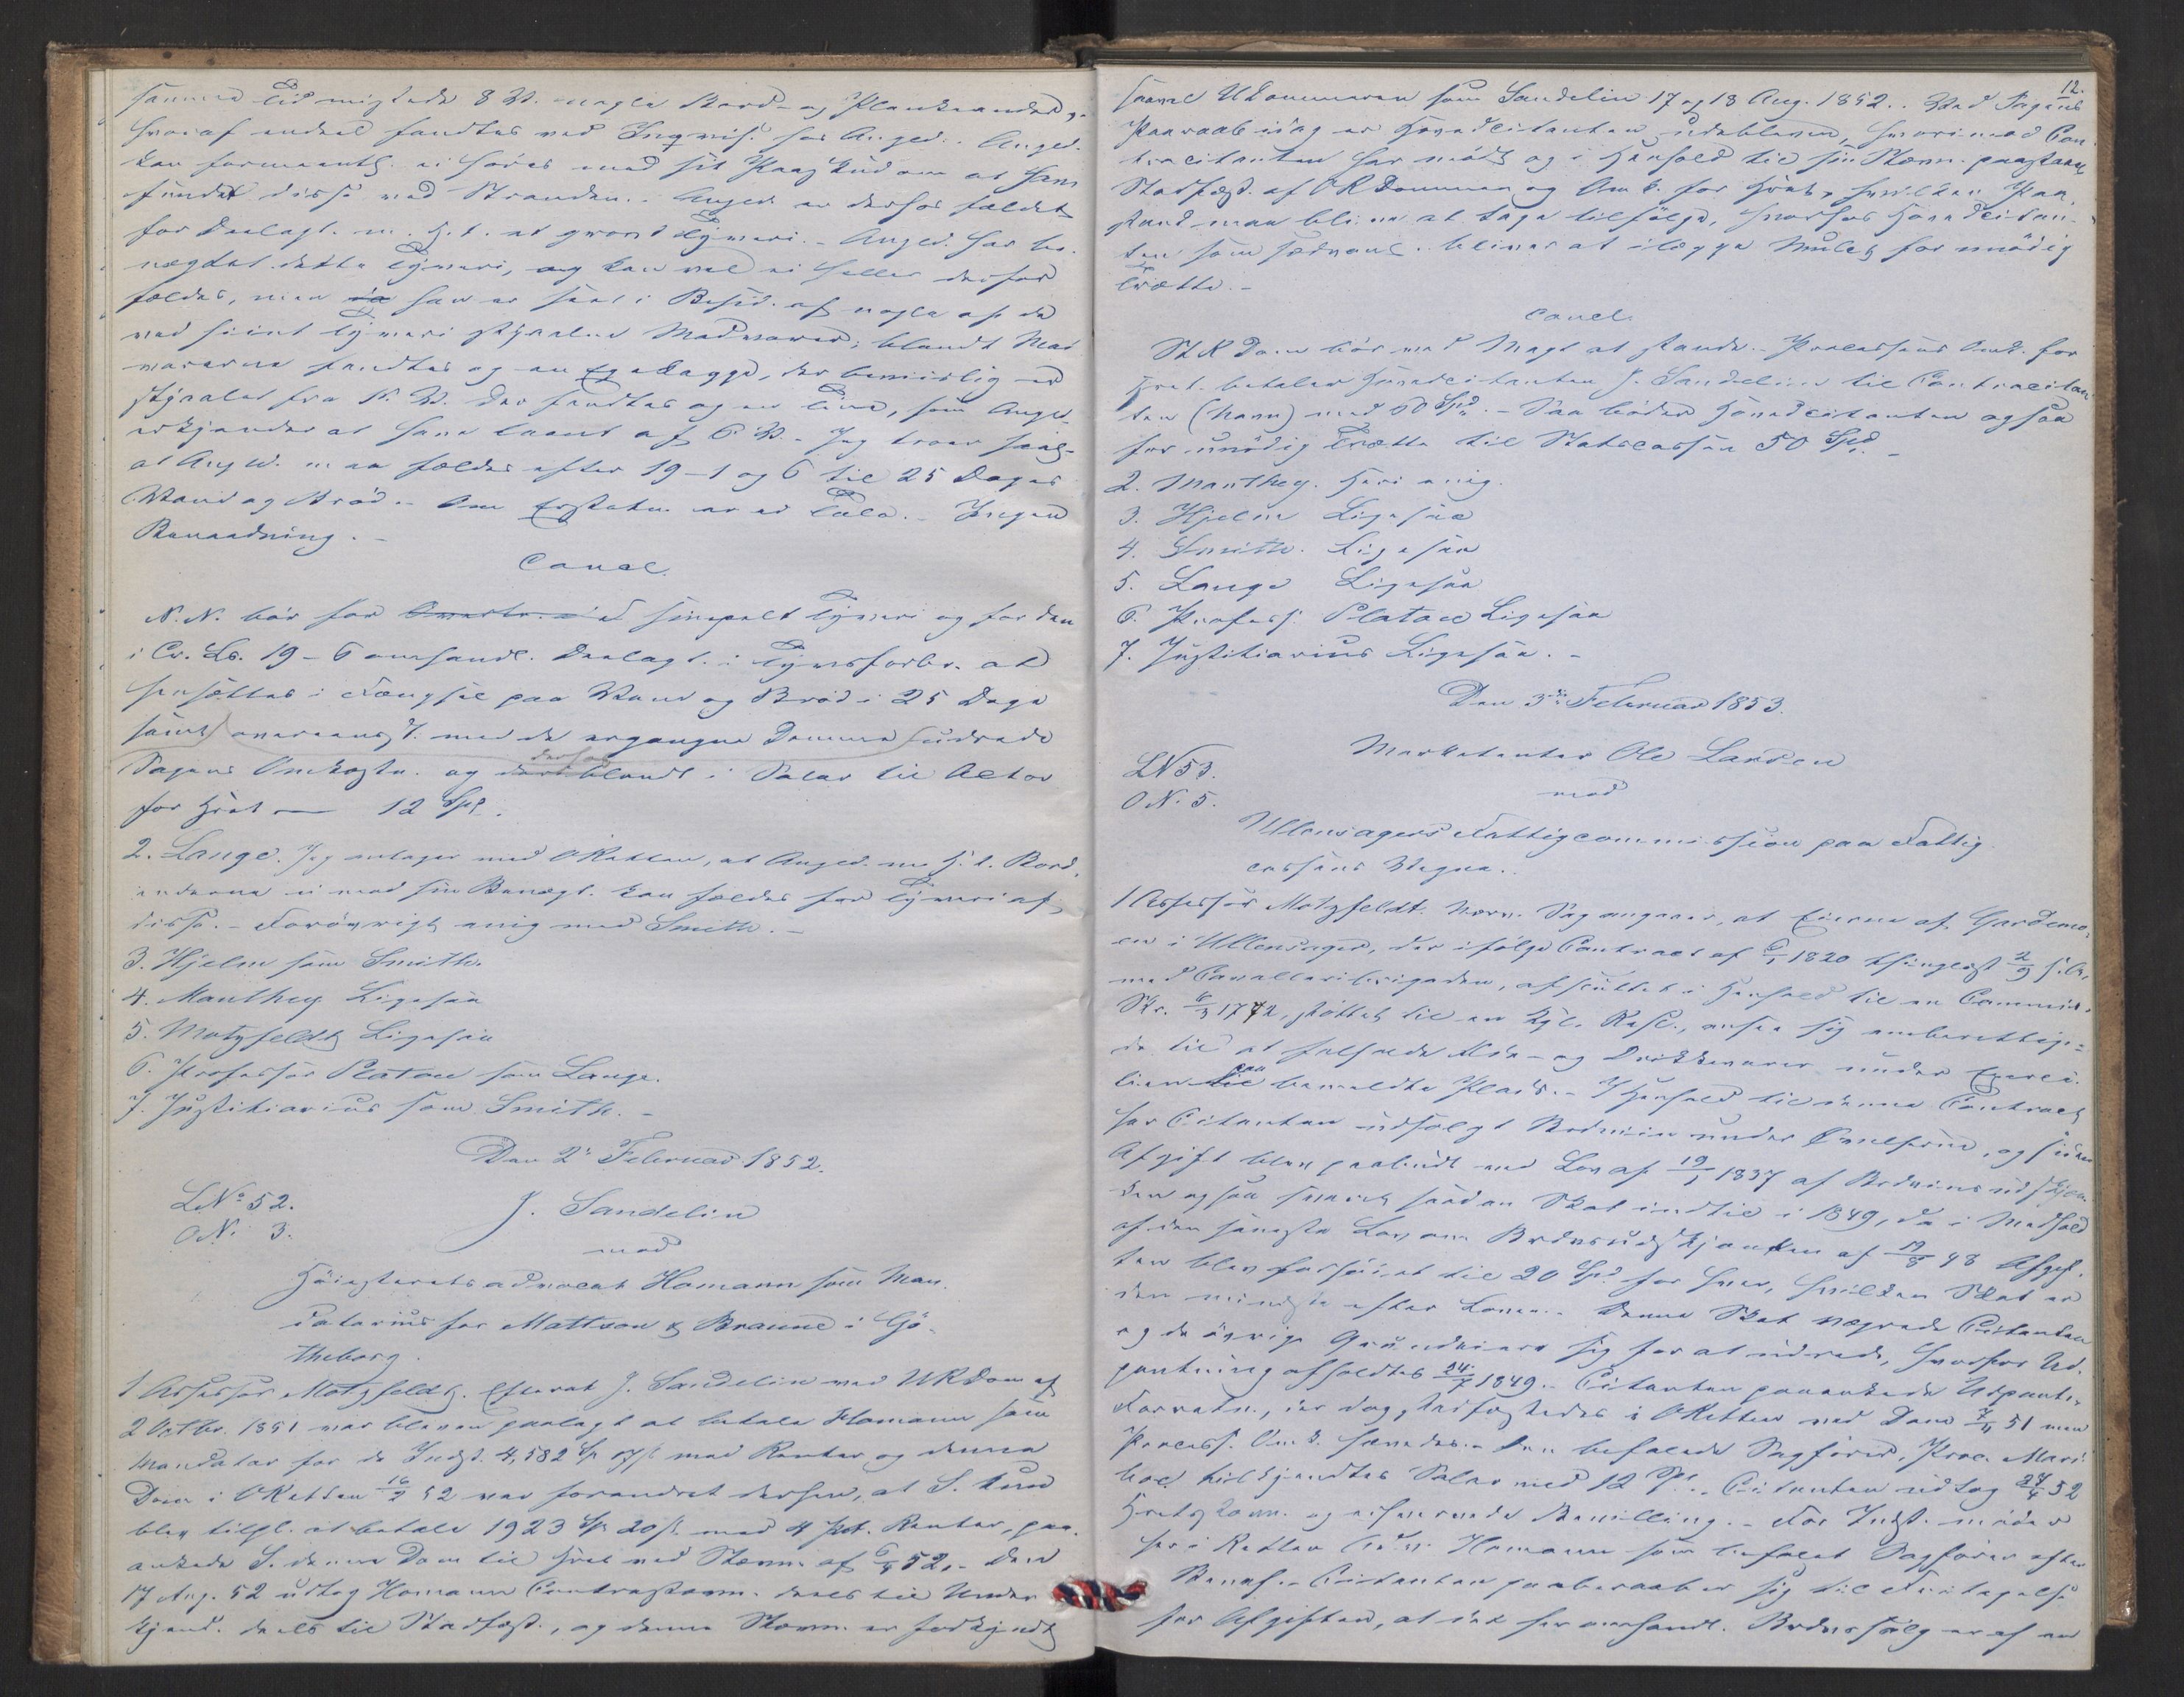 samme Tid mistede 8 V. nogle Bord- og Plankeender,
hvoraf endeel fandtes ved Inqvis. hos Anged.. Anged.
kan formeentl. ei høres med sit Paaskud om at have
fundet disse ved Stranden.. Anged. er derfor fældet
for Deelagt. m. H. t. et grovt Tyveri. - Anged. har be-
nægtet dette Tyveri, og kan vel ei heller derfor
fældes, men han er seet i Besid. af nogle af de
ved simt Tyveri stjaalne Madvarer; blandt Mad
varerne fandtes og en Egebagge, der
stjaalet fra 1. V. Der fandtes og en Tine, som Anged.
erkjender at have laant af 6 V. - Jeg troer saal.
at Anged. maa fældes efter 19-1 og 6 til 25 Dages
Vand og Brød. - Om Erstatn. er ei Tale. - Ingen
Benaadning. -
Concl.
N. N. bør for simpelt Tyveri og for den
i Cr. L. 19-6 omhandl. Deelagt. i Tyvsforbr. at
hensættes i Fængsel paa Vand og Brød i 25 Dage
samt overeensst. med de ergangne Domme udrede
Sagens Omkostn. og derfor iblandt i Salar til Actor
for Hret — 12 Spd.
2. Lange. Jeg antager med ORetten, at Anged. m. H. t. Bord
enderne ei mod sin Benægt. kan fældes for Tyveri af
disse. - Forøvrigt enig med Smith. -
3. Hjelm som Smith.
4. Manthey Ligesaa
5. Motzfeldt Ligesaa
6. Professor Platou som Lange.
7. Justitiarius som Smith. -
Den 2. Februar 1852.
LNo 52.
ON. 3.
J. Sandelin
mod
Høiesteretsadvocat Homann som Man-
datarius for Mattson & Braune i Gö-
theborg.
1 Assessor Motzfeldt. Efterat J. Sandelin ved URDom af
2 Octbr. 1851 var bleven paalagt at betale Homann som
Mandatar for de Indst. 4,582 Sp 07 s. med Renter, og denne
Dom i ORetten 16/2 52 var forandret derhen, at S. kun
blev tilpl. at betale 1923 Sp 20 s. med 4 pct. Renter, paa-
ankede S. denne Dom til Hret ved Stevn. af 6/4 52. - Den
17 Aug. 52 udtog Homann Contrastevn. deels til Under
kjend. deels til Stadfæst., og denne Stevn. er forkyndt
12.
saavel UDommeren som Sandelin 17 og 18 Aug. 1852.. Ved Sagens
Paaraab idag er Hovedcitanten udebleven, hvorimod Con-
tracitanten har mødt og i Henhold til sin Stevn. paastaaet
Stadfæst. af ORDommen og Omk. for Hret, hvilken Paa-
stand maa blive at tage tilfølge, hvorhos Hovedcitan-
ten som sædvanl. bliver at ilægge Mulct for unødig
Trætte. -
Concl.
StR Dom bør ved Magt at stande. - Processens Omk. for
Hret. betaler Hovedcitanten J. Sandelin til Contracitan
ten (navn) med 60 Spd. - Saa bøder Hovedcitanten ogsaa
for unødig Trætte til Statscassen 50 Spd. -
2. Manthey. Heri enig.
3. Hjelm Ligesaa
4. Smith. Ligesaa
5. Lange Ligesaa
6. Profess: Platou Ligesaa
7. Justitiarius Ligesaa. -
Den 3die Februar 1853.
LN 53.
ON. 5.
Marketenter Ole Larsen
mod
Ullensagers Fattigcommission paa Fattig
cassens Vegne..
1 Assessor Motzfeldt. Nærv. Sag angaaer, at Eierne af Gardemo-
en i Ullensager, der ifølge Contract af 6/1 1820 thinglæst 2/9 s. A.
med Cavalleribrigaden, afsluttet i Henhold til en Commis.
Skr. 6/3 1772, støttet til en kgl. Resl., ansee sig emberettige-
de til at falholde Mad- og Drikkevarer under Exerci-
tien paa bemeldte Plads. - I Henhold til denne Contract
har Citanten udsolgt Brdviin under Exercitien, og siden
Afgift blev paabudt ved Lov af 19/1 1837 af Brdvinsudskjæn-
ken ogsaa svaret saadan Skat indtil i 1849, da i Medhold
af den seneste Lov om Brdvsudskjænken af 17/8 48 Afgif-
ten blev forhøiet til 20 Spd for hver, hvilken Skat er
den mindste efter Loven. - Denne Skat vægrede Citanten
og de øvrige Grundeiere sig for at udrede, hvorfor Ud-
pantning afholdtes 24/7 1849. - Citanten paaankede Udpantn.
Forretn., der dog stadfæstedes i ORetten ved Dom 7/11 51 men
Process. Omk. hævedes. - Den befalede Sagfører, Proc. Mari
boe tilkjendtes Salar med 12 Spd.. Citanten udtog 27/4 52
Hretsstevn. og erhvervede Bevilling. - For Indst. møder
her i Retten Adv. Homann som befalet Sagfører efter
Benef. - Citanten paaberaaber sig til Fritagelse
for Afgiften, at det her omhandl. Brdvssalg er af en